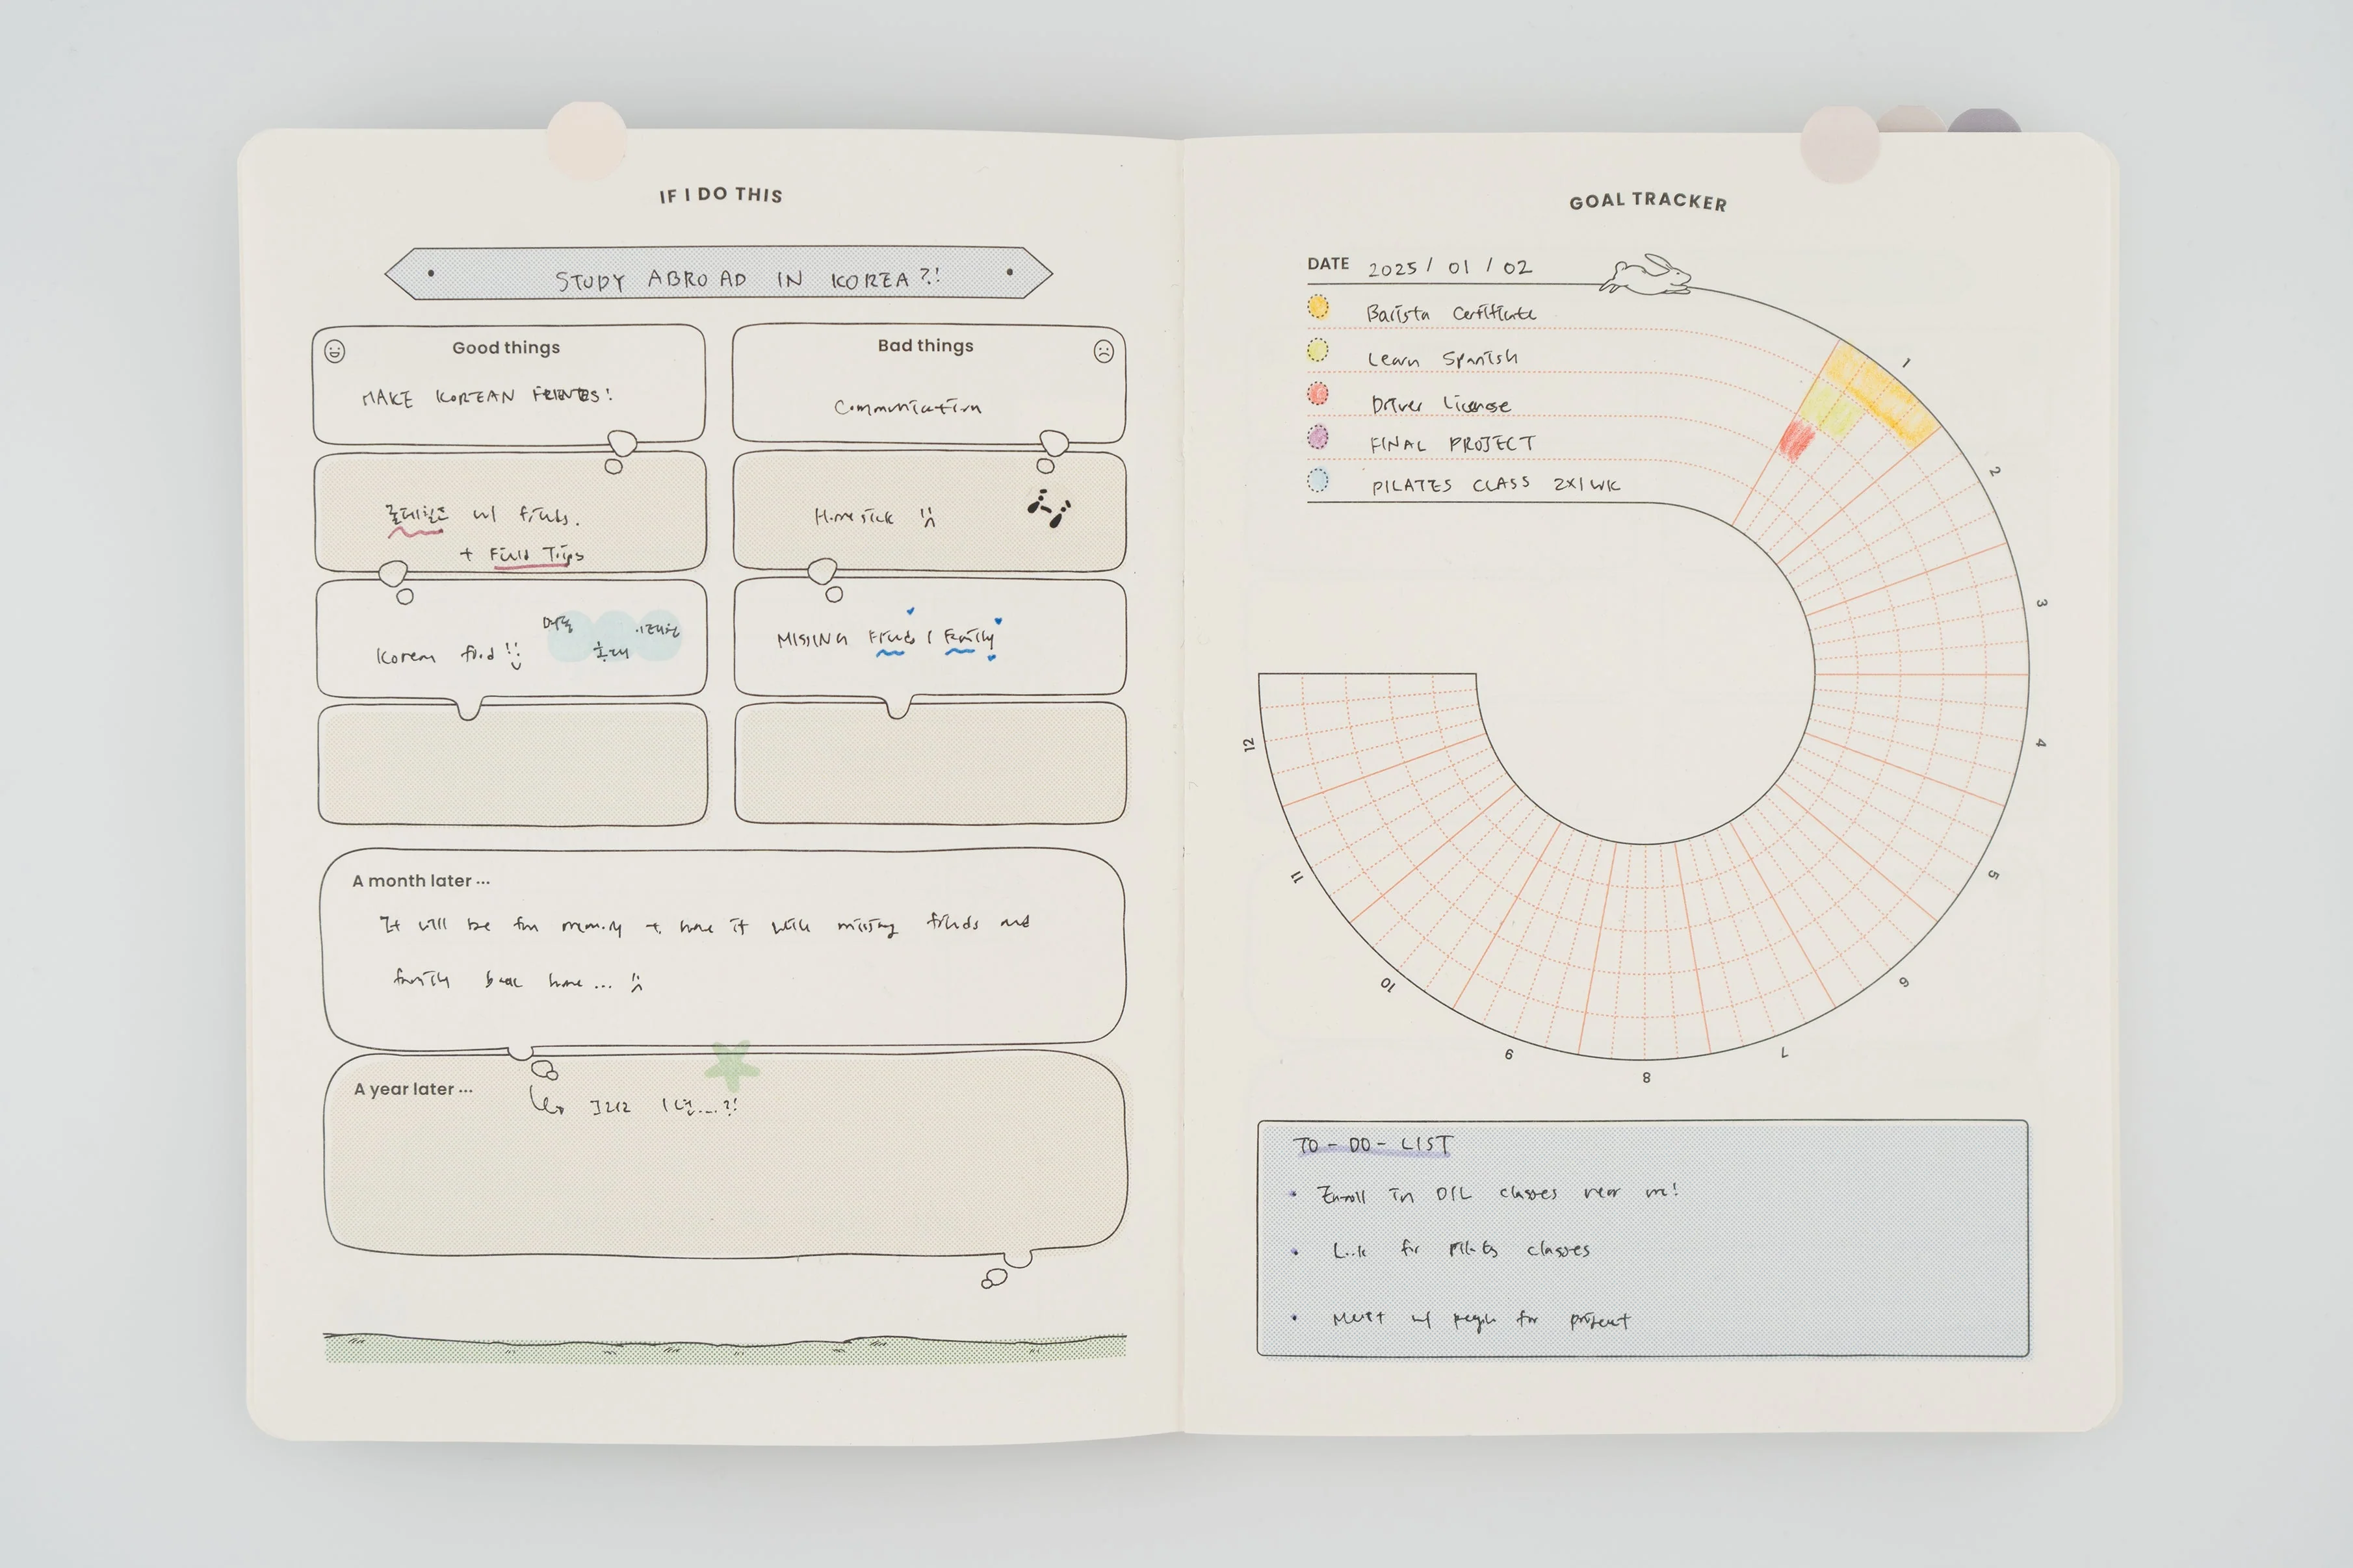 IF I DO THIS
STUDY ABROAD IN KOREA?!
Good things
MAKE KOREAN FRIENDS!
w/ friends.
+ Field Trips
Korean food
Bad things
Communication
Homesick
MISSING Friends / Family
A month later ...
It will be fun memory to have it while missing friends and
family back home...
A year later ...
그리고 1년....?!
GOAL TRACKER
DATE 2025 / 01 / 02
Barista Certificate
Learn Spanish
Driver License
FINAL PROJECT
PILATES CLASS 2X1WK
1
2
3
4
5
6
7
8
9
10
11
12
TO-DO-LIST
• Enroll in classes near me!
• Look for Pilates classes
• Meet w/ people for project